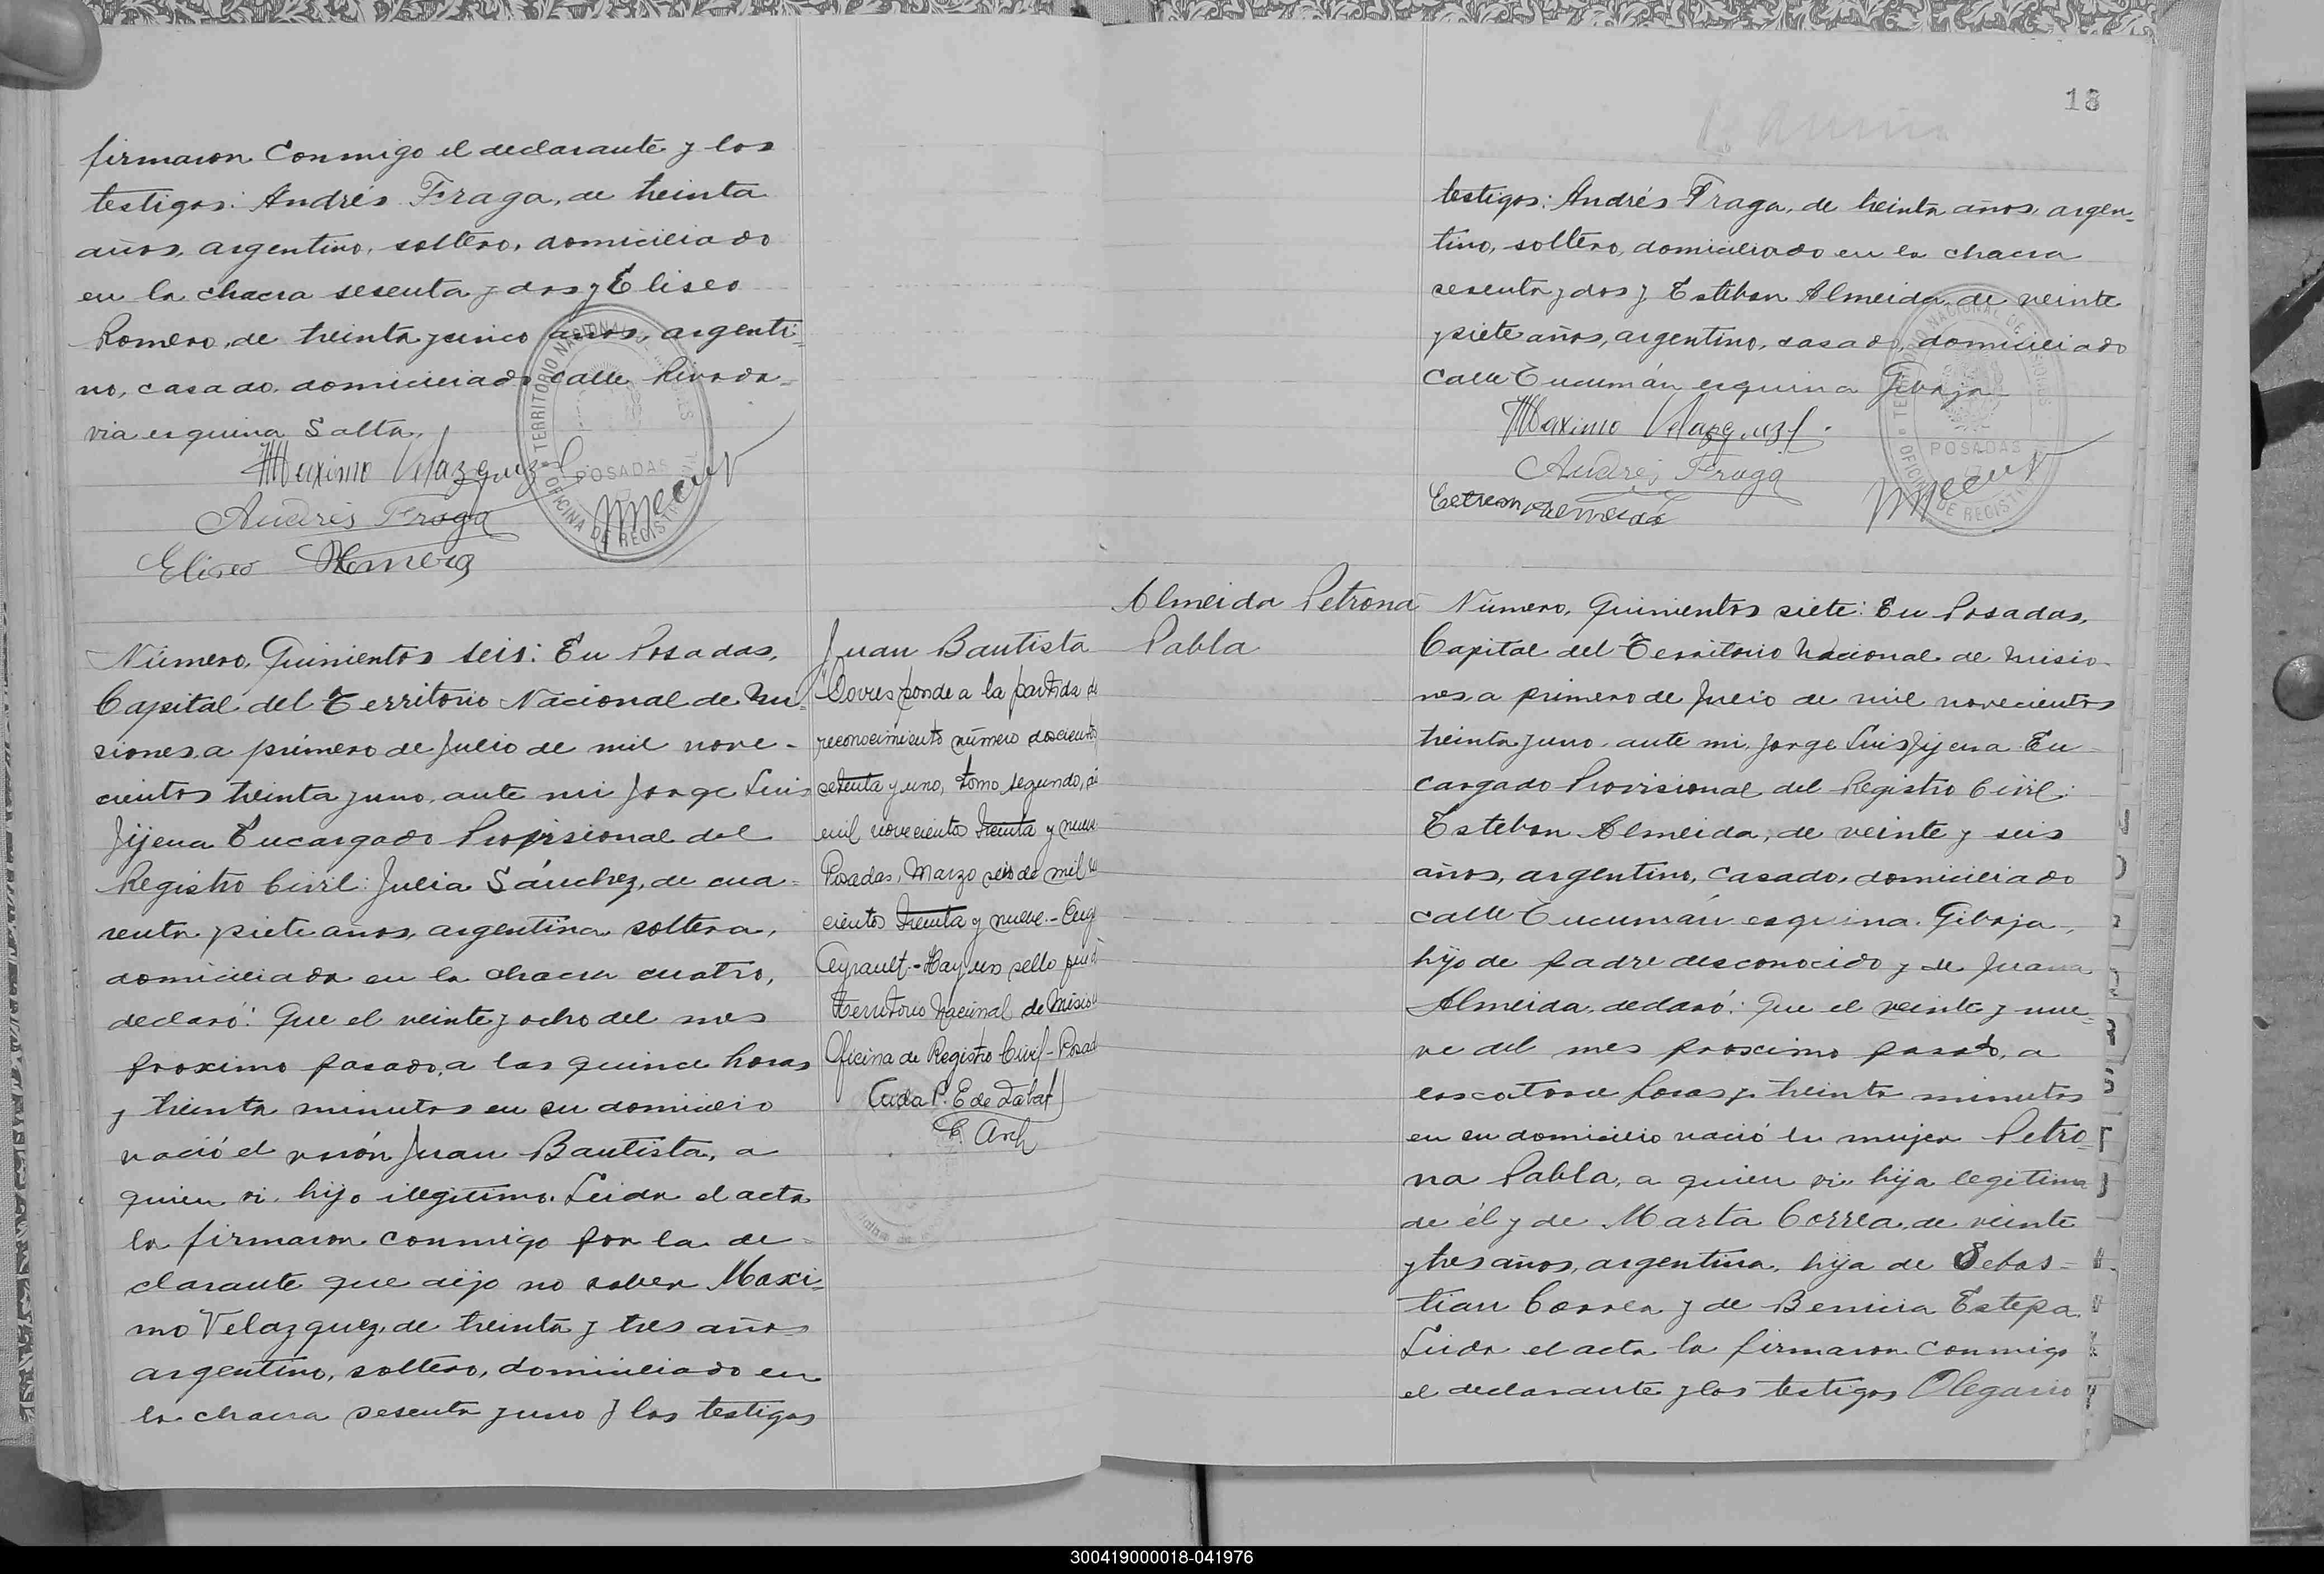 firmaron conmigo el declarante y los
testigos: Andrés Fraga, de treinta
años, argentino, soltero, domiciliado
en la chacra sesenta y dos y Eliseo
Romero, de treinta y cinco años, argenti-
no, casado, domiciliado calle Rivada-
via esquina Salta.
Maximo Velazquez
Andrés Fraga
Eliseo Romero
TERRITORIO NACIONAL DE MISIONES
POSADAS
OFICINA DE REGISTRO CIVIL
Número, Quinientos seis: En Posadas,
Capital del Territorio Nacional de Mi-
siones, a primero de Julio de mil nove-
cientos treinta y uno, ante mi Jorge Luis
Jijena Encargado Provisional del
Registro Civil: Julia Sánchez, de cua-
renta y siete años, argentina, soltera,
domiciliada en la chacra cuatro,
declaró: Que el veinte y ocho del mes
proximo pasado, a las quince horas
y treinta minutos en su domicilio
nació el varón Juan Bautista, a
quien vi, hijo ilegitimo. Leida el acta
la firmaron conmigo por la de-
clarante que dijo no saber Maxi-
mo Velazquez, de treinta y tres años
argentino, soltero, domiciliado en
la chacra sesenta y uno y los testigos
Juan Bautista
Corresponde a la partida de
reconocimiento número doscientos
setenta y uno, tomo segundo,
mil novecientos treinta y nueve
Posadas, Marzo seis de mil
cientos treinta y nueve.-
Ceyrault.-Hay un sello que
Territorio Nacional de Mision
Oficina de Registro Civil-Posad
P. E de Labat
E. Arch
18
testigos: Andrés Fraga, de treinta años, argen-
tino, soltero, domiciliado en la chacra
sesenta y dos y Esteban Almeida, de veinte
y siete años, argentino, casado, domiciliado
calle Tucumán esquina Gibaja.
Maximo Velazquez.
Andrés Fraga
Esteban Almeida
TERRITORIO NACIONAL DE MISIONES
POSADAS
OFICINA DE REGISTRO CIVIL
Almeida Petrona
Pabla
Número, Quinientos siete: En Posadas,
Capital del Territorio Nacional de Misio-
nes a primero de Julio de mil novecientos
treinta y uno, ante mi, Jorge Luis Jijena En-
cargado Provisional del Registro Civil:
Esteban Almeida, de veinte y seis
años, argentino, casado, domiciliado
calle Tucumán esquina Gibaja,
hijo de padre desconocido y de Juana
Almeida, declaró: Que el veinte y nue-
ve del mes proximo pasado, a
las catorce horas y treinta minutos
en su domicilio nació la mujer Petro-
na Pabla, a quien vi, hija legitima
de él y de Marta Correa, de veinte
y tres años, argentina, hija de Sebas-
tian Correa y de Benicia Estepa.
Leida el acta la firmaron conmigo
el declarante y los testigos Olegario
300419000018-041976